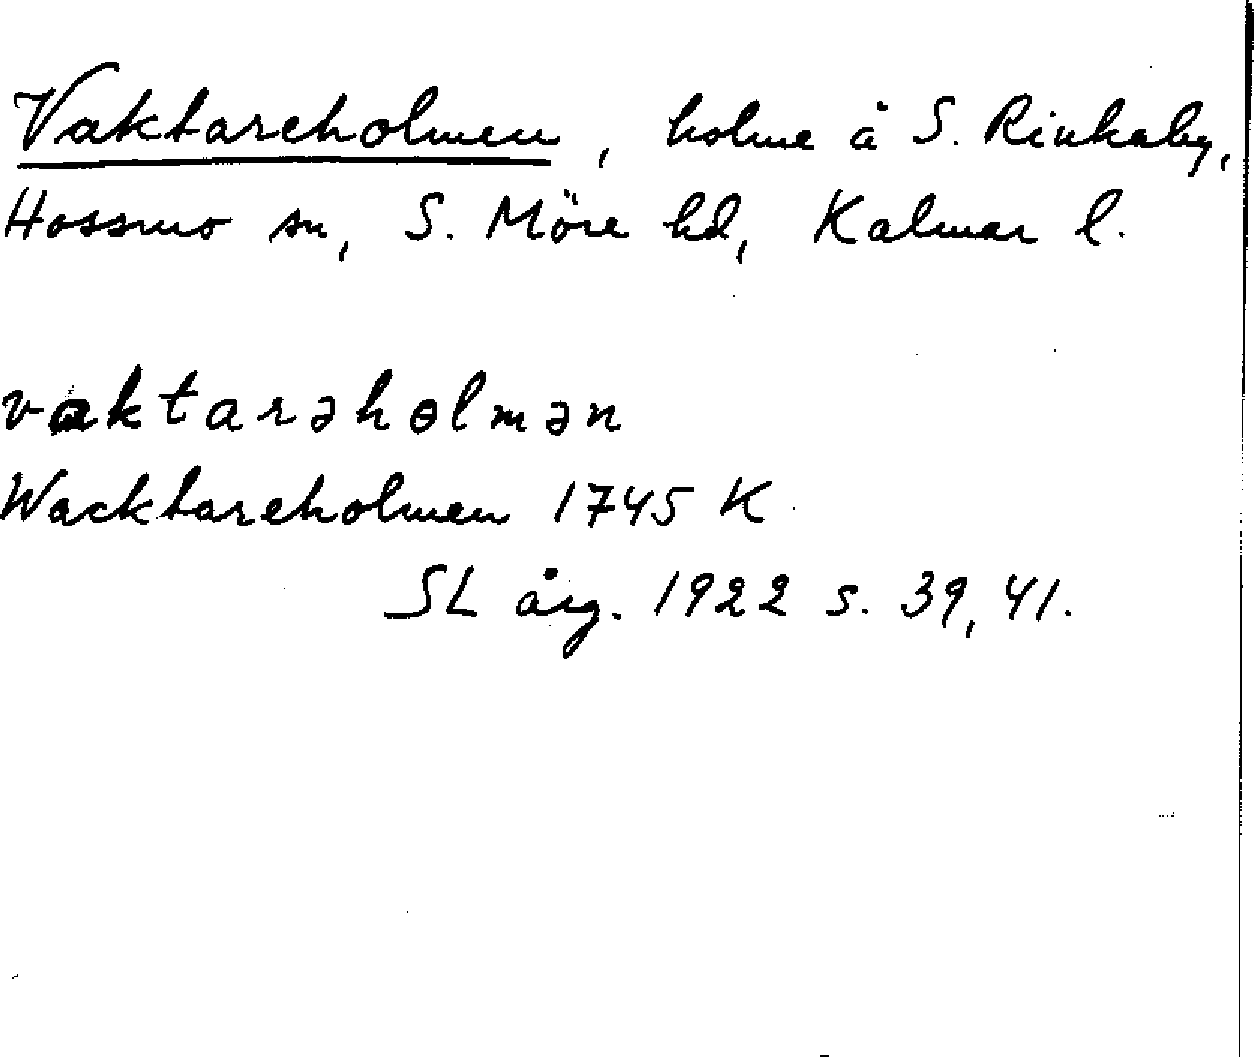 Vaktareholmen, holme å S. Rinkaby,
Hossmo sn, S. Möre hd, Kalmar l.
vaktarəhɵlmən
Wacktareholmen 1745 K
SL årg. 1922 s. 39, 41.